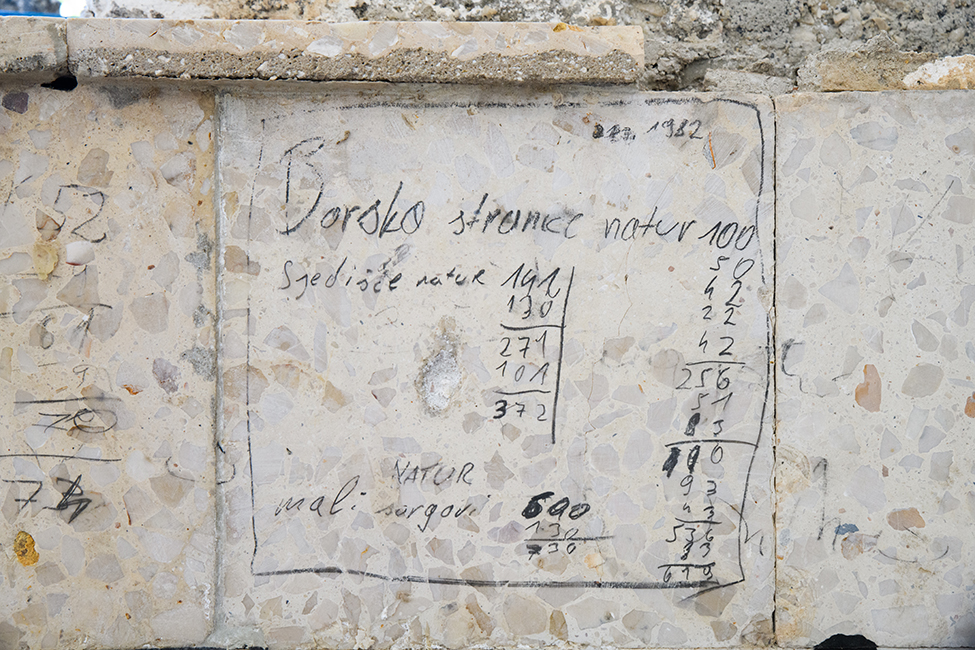 1982
Borsko strance natur 100
50
42
22
42
256
51
83
93
43
536
83
619
Sjedišće natur 141
130
271
101
372
NATUR
mali sargovi 600
130
730
52
70